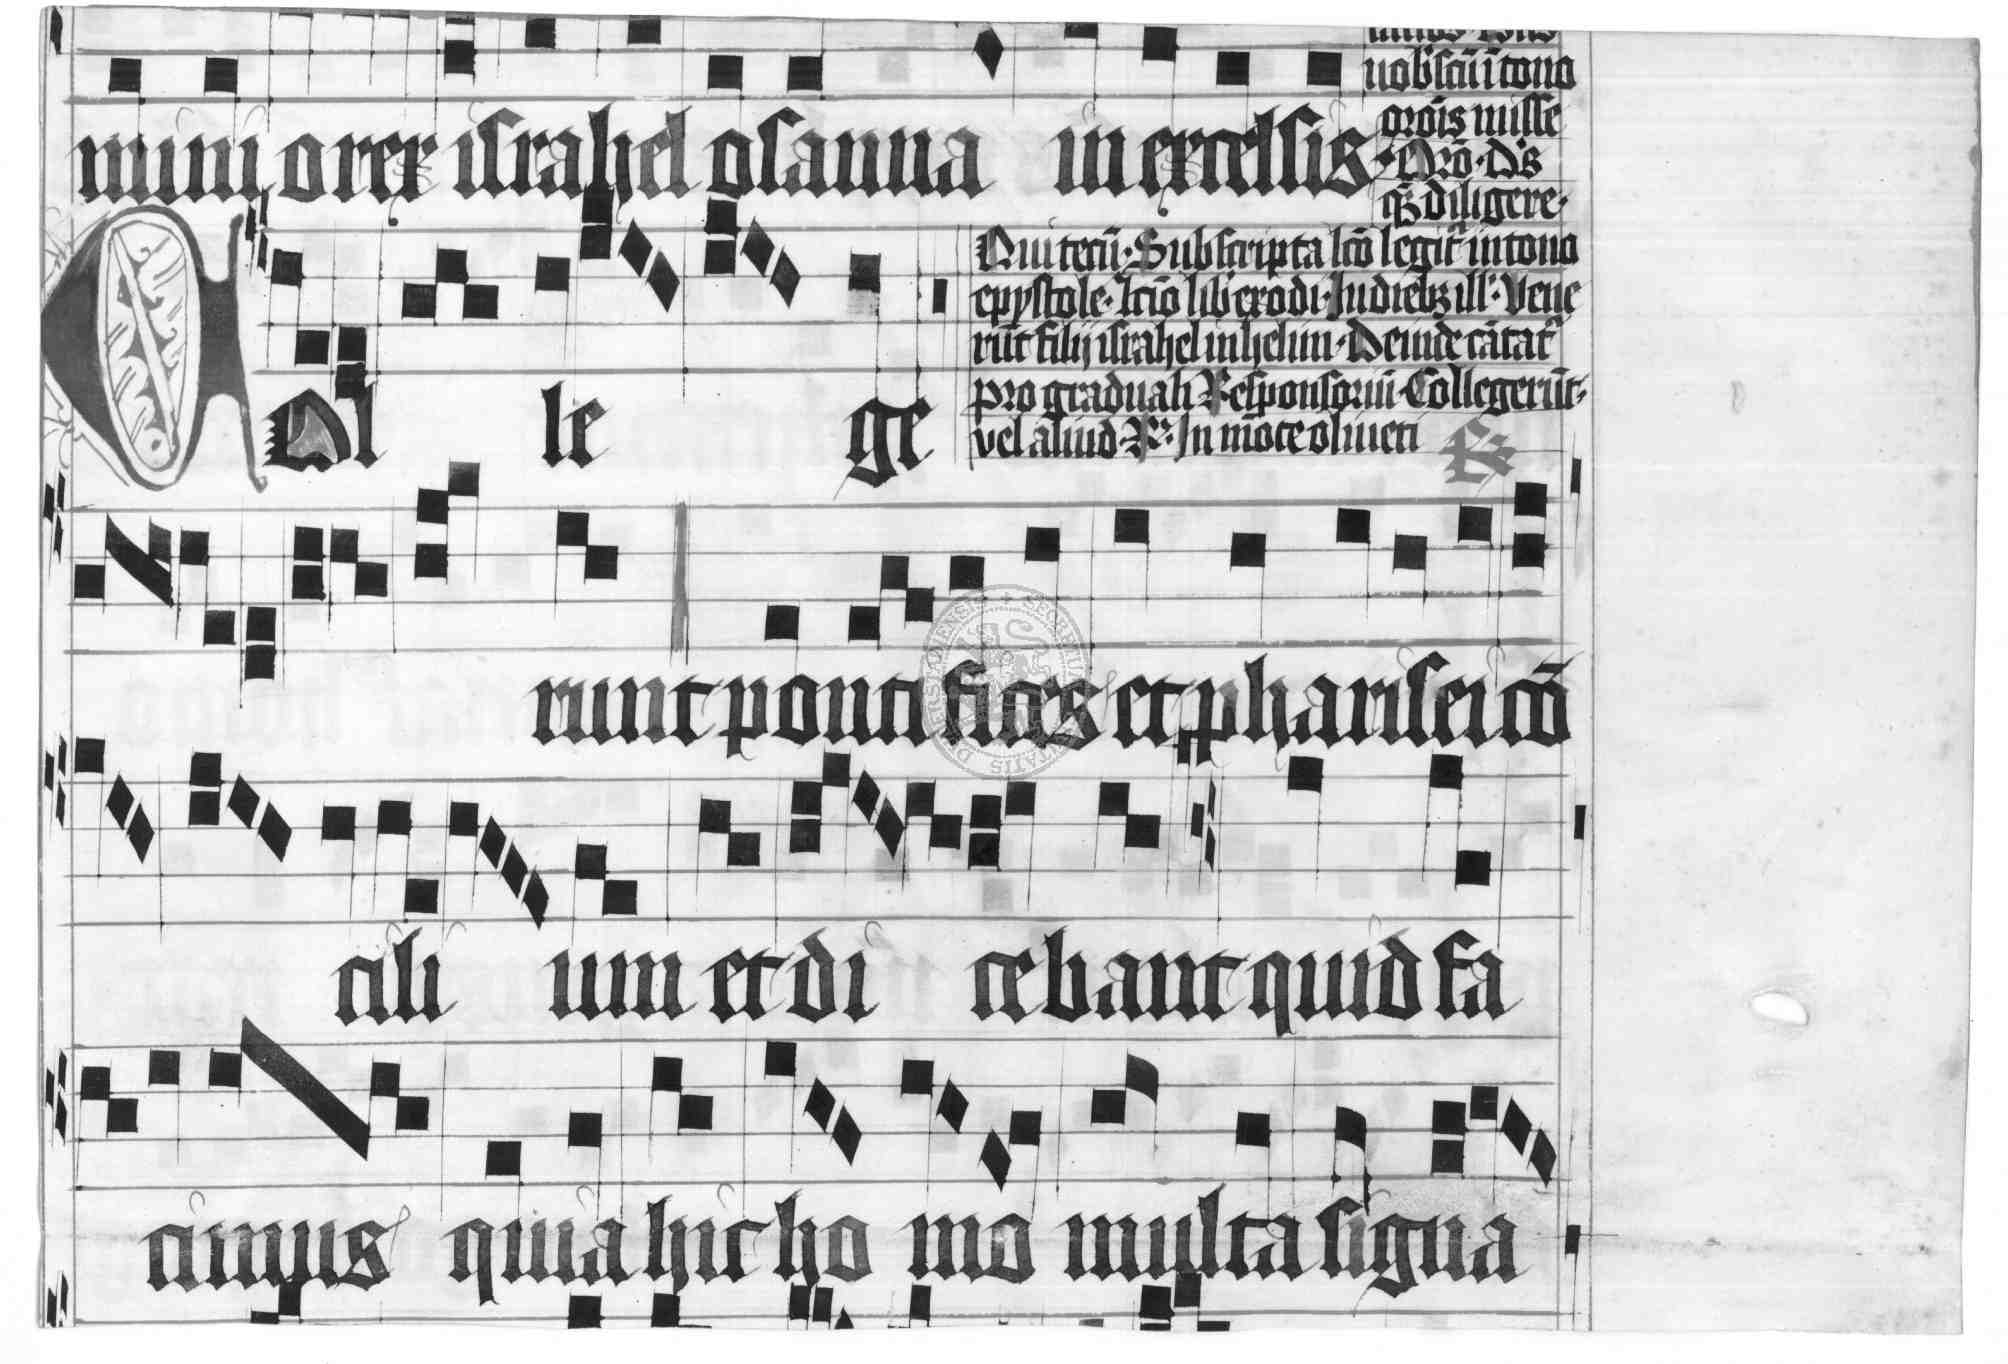 nobiscū ī tono
orōis misse
Orō · Ds
mini o rex israhel osanna in excelsis
q̄ diligere ·
Qui tecū · Subscripta lcō legit in tono
epystole · lcō lib exodi · In dieb ill · Vene
rūt filij israhel in helim · Deinde cātat
pro graduali Responsoriū · Collegerūt ·
vel aliud · R · In mōte oliueti
Ol le ge
runt pontifices et pharisei cō
cili um et di cebant quid fa
cimus quia hic ho mo multa signa